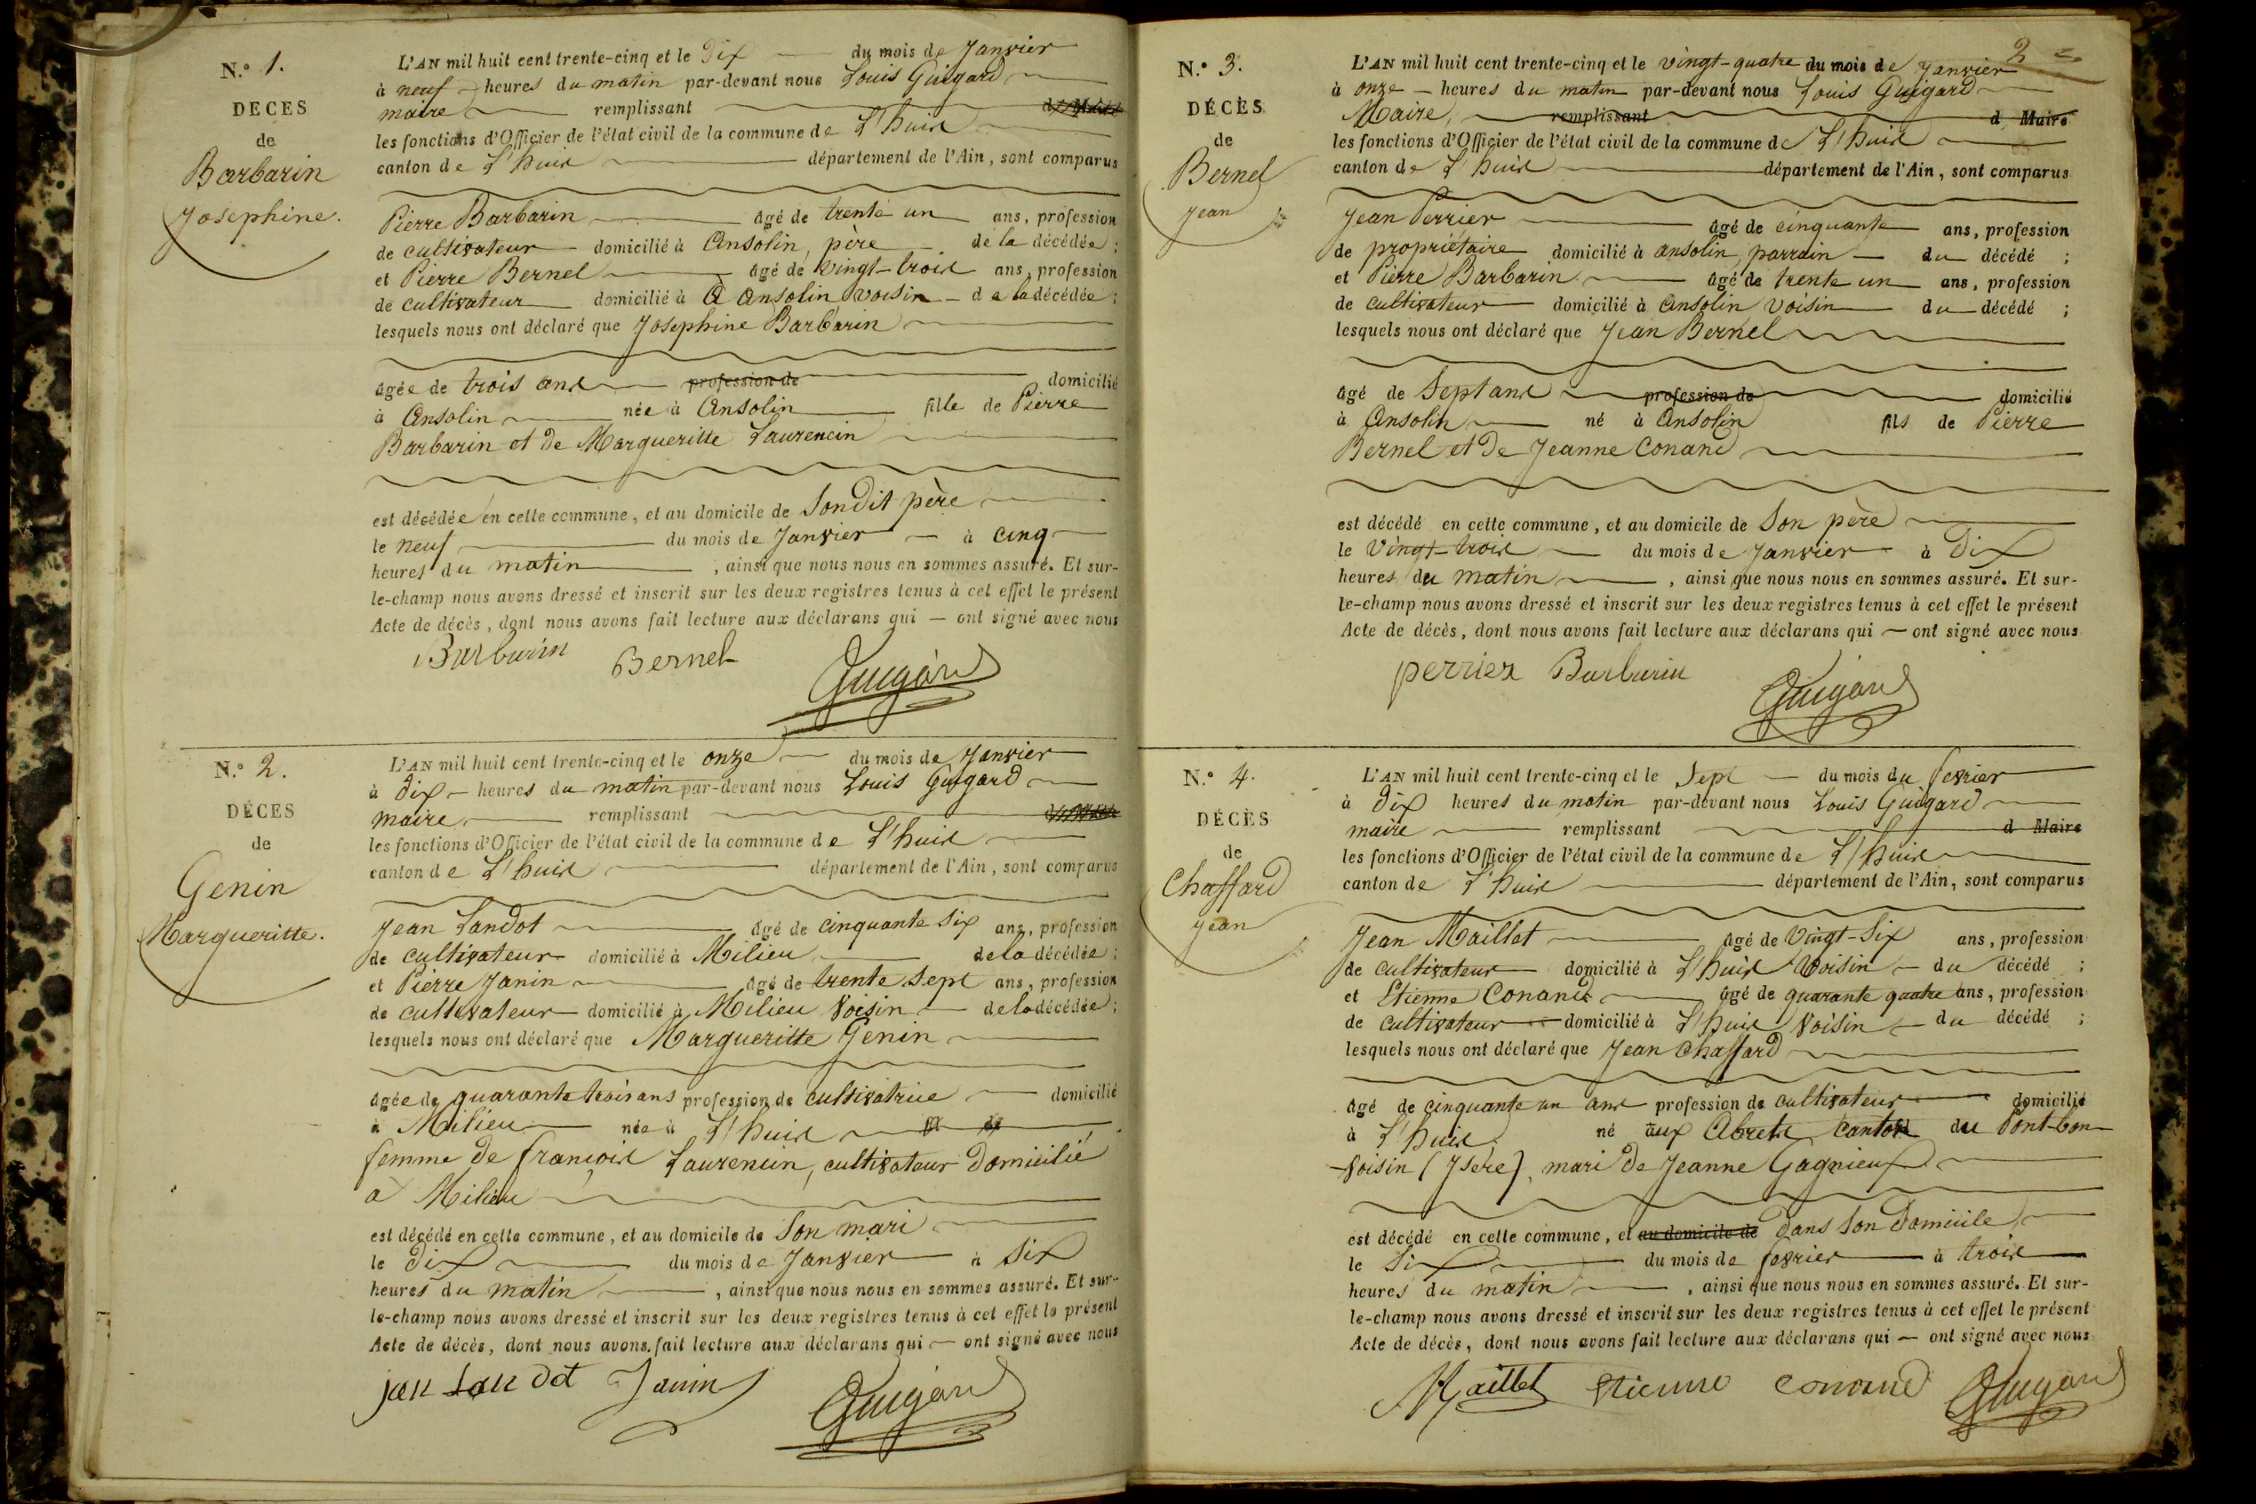 N.° 1.
DECES
de
Barbarin
Josephine.
L'AN mil huit cent trente-cinq et le dix du mois de Janvier
à neuf heures du matin par-devant nous Louis Guigard
maire remplissant
les fonctions d'Officier de l'état civil de la commune de L'huis
canton de L'huis département de l'Ain, sont comparus
Pierre Barbarin âgé de trente un ans, profession
de cultivateur domicilié à Ansolin, père de la décédée ;
et Pierre Bernel âgé de vingt-trois ans, profession
de cultivateur domicilié à à Ansolin voisin de la décédée ;
lesquels nous ont déclaré que Josephine Barbarin
âgée de trois ans profession de domicilié
à Ansolin née à Ansolin fille de Pierre
Barbarin et de Margueritte Laurencin
est décédée en cette commune, et au domicile de Sondit père
le neuf du mois de Janvier à cinq
heures du matin , ainsi que nous nous en sommes assuré. Et sur-
le-champ nous avons dressé et inscrit sur les deux registres tenus à cet effet le présent
Acte de décès, dont nous avons fait lecture aux déclarans qui — ont signé avec nous
Barbarin Bernel Guigard
N.° 2.
DÉCES
de
Genin
Margueritte.
L'AN mil huit cent trente-cinq et le onze du mois de Janvier
à dix heures du matin par-devant nous Louis Guigard
maire remplissant
les fonctions d'Officier de l'état civil de la commune de L'huis
canton de L'huis département de l'Ain, sont comparus
Jean Landot âgé de cinquante six ans, profession
de cultivateur domicilié à Milieu de la décédée ;
et Pierre Janin âgé de trente sept ans, profession
de cultivateur domicilié à Milieu voisin de la décédée ;
lesquels nous ont déclaré que Margueritte Genin
âgée de quarante trois ans profession de cultivatrice domicilié
à Milieu née à L'huis
femme de françois Laurencin, cultivateur domicilié
à Milieu
est décédé en cette commune, et au domicile de Son mari
le dix du mois de Janvier à Six
heures du matin , ainsi que nous nous en sommes assuré. Et sur-
le-champ nous avons dressé et inscrit sur les deux registres tenus à cet effet le présent
Acte de décès, dont nous avons fait lecture aux déclarans qui — ont signé avec nous
jan Landot Janin Guigard
2
N.° 3.
DÉCÈS
de
Bernel
Jean
L'AN mil huit cent trente-cinq et le vingt-quatre du mois de Janvier
à onze heures du matin par-devant nous Louis Guigard
Maire, remplissant d Maire
les fonctions d'Officier de l'état civil de la commune de L'huis
canton de L'huis département de l'Ain, sont comparus
Jean Perrier âgé de cinquante ans, profession
de propriétaire domicilié à ansolin, parrain du décédé ;
et Pierre Barbarin âgé de trente un ans, profession
de cultivateur domicilié à Ansolin Voisin du décédé ;
lesquels nous ont déclaré que Jean Bernel
âgé de Sept ans profession de domicilié
à Ansolin né à Ansolin fils de Pierre
Bernel et de Jeanne Conand
est décédé en cette commune, et au domicile de Son père
le Vingt-trois du mois de Janvier à Dix
heures du matin , ainsi que nous nous en sommes assuré. Et sur-
le-champ nous avons dressé et inscrit sur les deux registres tenus à cet effet le présent
Acte de décès, dont nous avons fait lecture aux déclarans qui — ont signé avec nous
perrier Barbarin Guigard
N.° 4.
DÉCÈS
de
Chaffard
Jean
L'AN mil huit cent trente-cinq et le Sept du mois du fevrier
à dix heures du matin par-devant nous Louis Guigard
maire remplissant d Maire
les fonctions d'Officier de l'état civil de la commune de L'huis
canton de L'huis département de l'Ain, sont comparus
Jean Maillet âgé de Vingt-Six ans, profession
de cultivateur domicilié à L'huis Voisin du décédé ;
et Etienne Conand âgé de quarante quatre ans, profession
de cultivateur domicilié à L'huis Voisin du décédé ;
lesquels nous ont déclaré que Jean Chaffard
âgé de cinquante un ans profession de cultivateur domicilié
à L'huis né aux Abrets canton du Pont-bon-
voisin (Isère), mari de Jeanne Gagnieux
est décédé en cette commune, et au domicile de dans Son domicile
le Six du mois de fevrier à trois
heures du matin , ainsi que nous nous en sommes assuré. Et sur-
le-champ nous avons dressé et inscrit sur les deux registres tenus à cet effet le présent
Acte de décès, dont nous avons fait lecture aux déclarans qui — ont signé avec nous
Maillet Etienne Conand Guigard